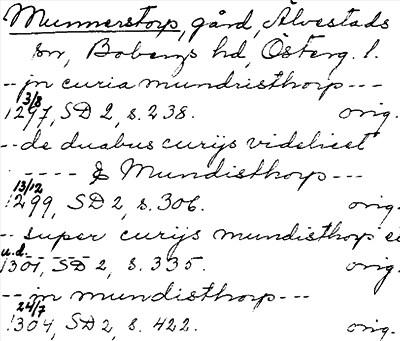 Munnerstorp, gård, Älvestads
sn, Bobergs hd, Österg. l.
-- in curia mundristhorp ---
13/8
1297, SD 2, s. 238. orig.
-- de duabus curijs videlicet
- ---- & Mundisthorp ---
13/12
1299, SD 2, s. 306. orig.
-- super curijs mundisthorp e
u.d.
1301, SD 2, s. 335. orig.
-- in mundisthorp ---
24/7
1304, SD 2, s. 422. orig.